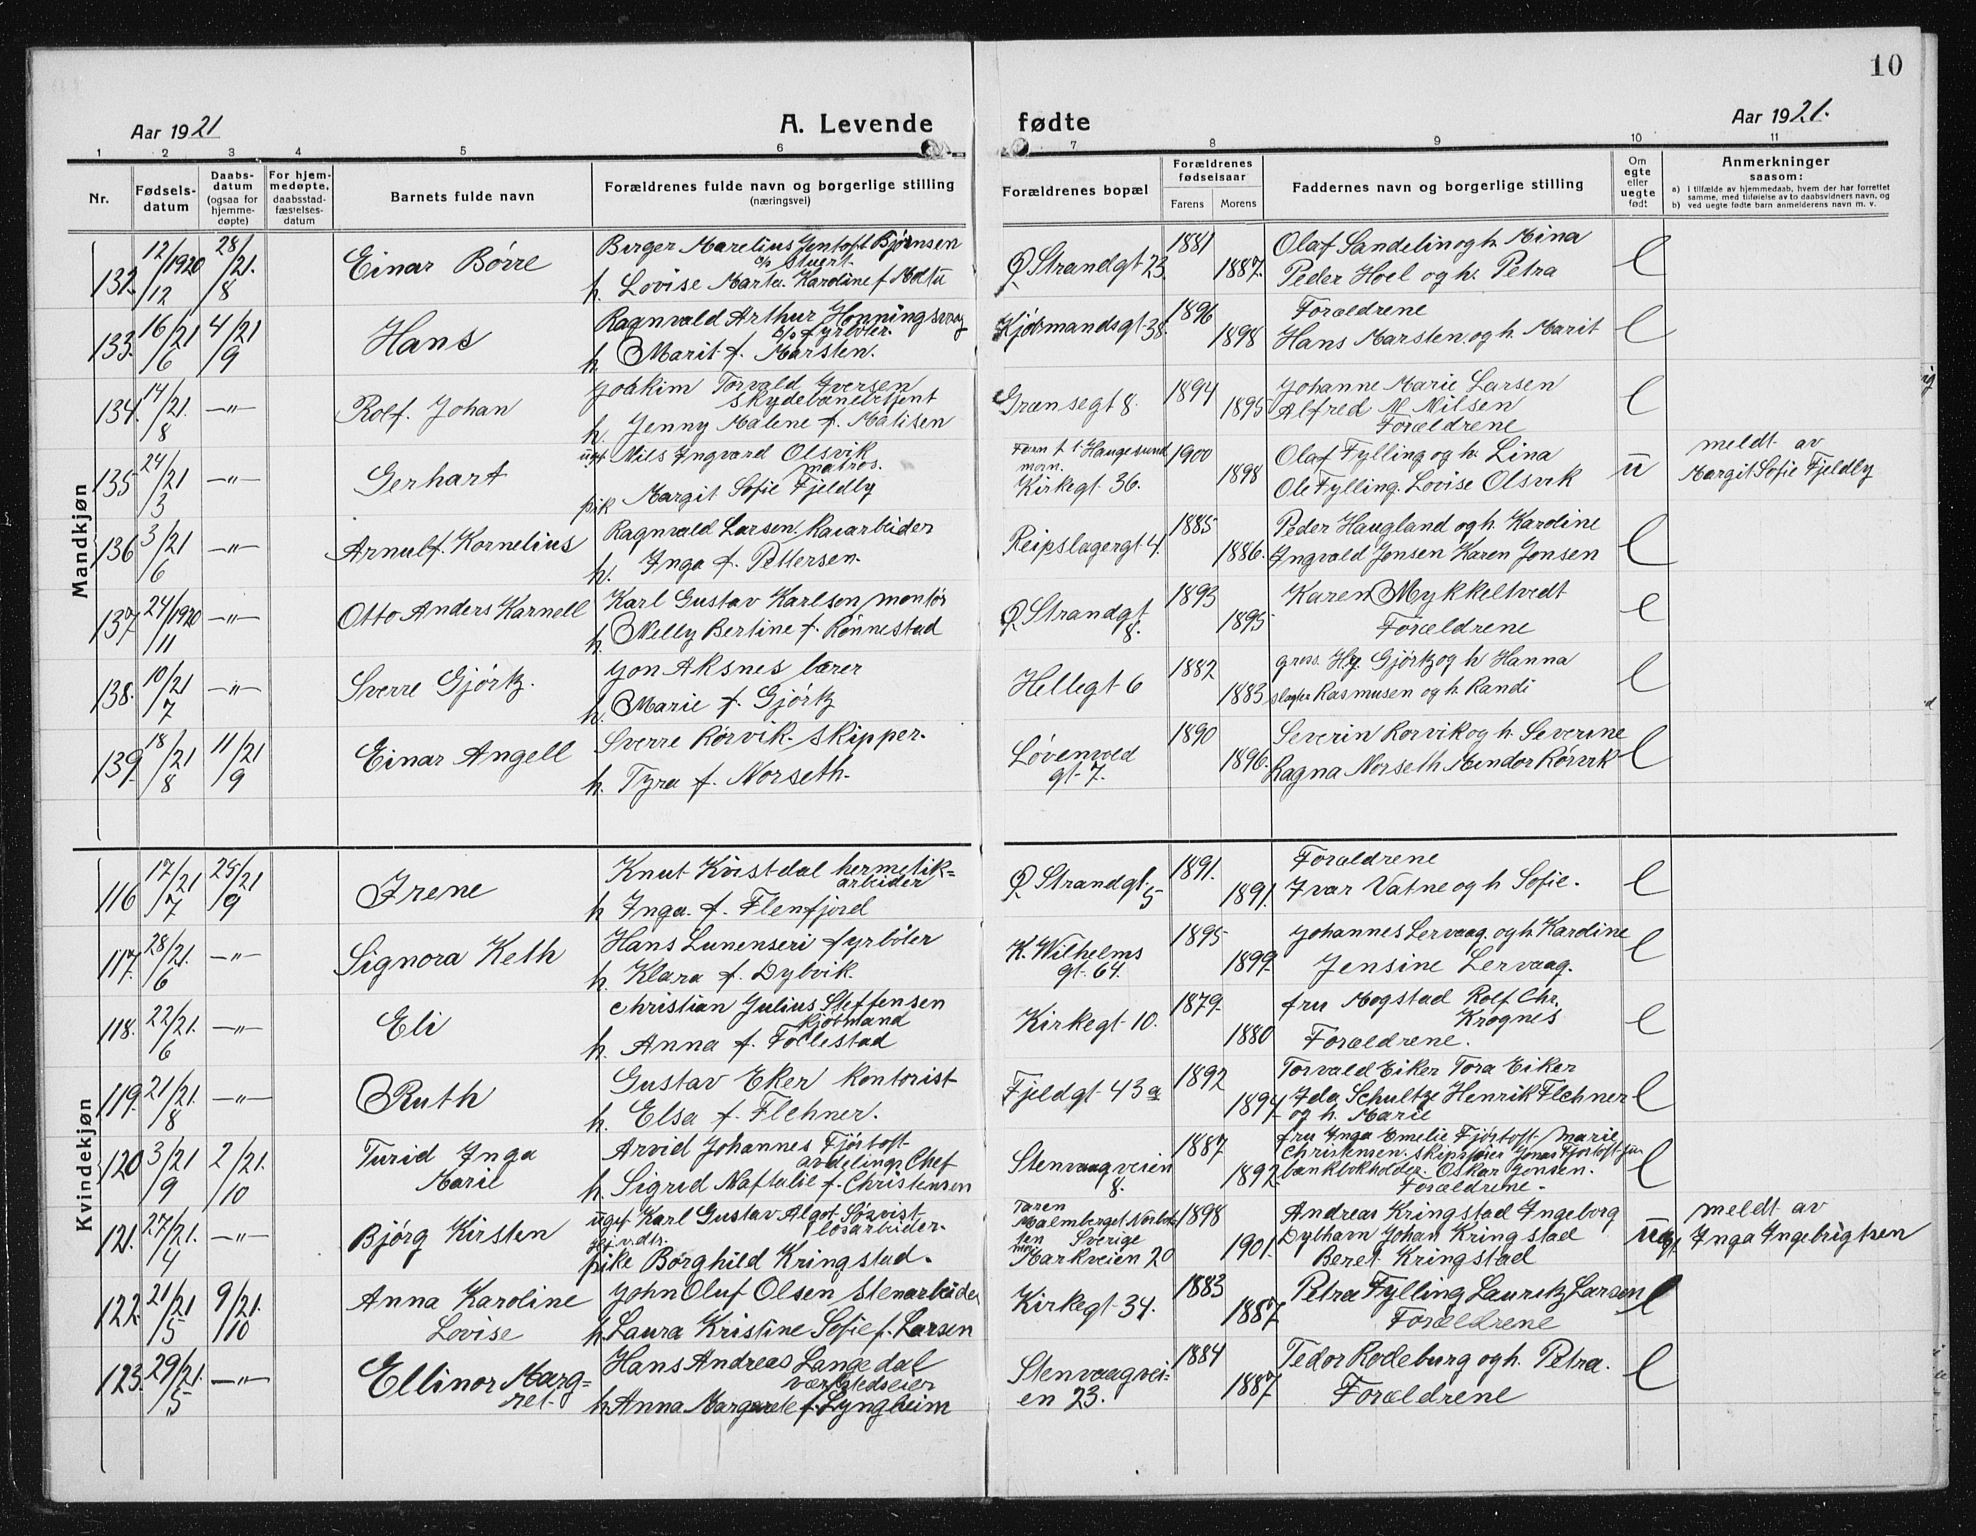 10
Aar 1921
A. Levende
fødte
Aar 1921.
1 2 3 4 5 6 7 8 9 10 11
Nr.
Fødsels-
datum
Daabs-
datum
(ogsaa for
hjemme-
døpte)
For hjem-
medøpte,
daabsstad-
fæstelses-
datum
Barnets fulde navn
Forældrenes fulde navn og borgerlige stilling
(næringsvei)
Forældrenes bopæl
Forældrenes
fødselsaar
Farens Morens
Faddernes navn og borgerlige stilling
Om
egte
eller
uegte
født
Anmerkninger
saasom:
a) i tilfælde av hjemmedaab, hvem der har forrettet
samme, med tilføielse av to daabsvidners navn, og
b) ved uegte fødte barn anmelderens navn m. v.
Mandkjøn
132. 12/1920 /12 28/21. /8 Einar Börre
Birger Marelius Jentoft Björnsen
stuert.
h. Lovise Marta Karoline f. Molta
Ø. Strandgt 23. 1881 1887.
Olaf Sandelin og h. Mina
Peder Hoel og h. Petra
l
133. 16/21 /6 4/21 /9 Hans
Ragnvald Arthur Honningsvåg
fyrböter.
h Marit f. Marsten.
Kjøbmandsgt 38. 1896 1898
Forældrene
Hans Marsten og h. Marit
l
134. 14/21. /8 —"— Rolf Johan
Joakim Torvald Iversen
Skydebanebetjent
h. Jenny Malene f. Malisen
Grænsegt 8. 1894 1895
Johanne Marie Larsen
Alfred M. Nilsen
Forældrene
l
135 24/21 /3 —"— Gerhart
ugf Nils Ingvard Olsvik
matros.
pik Margit Sofie Fjeldby
Faren f. i Haugesund
morn.
Kirkegt 36. 1900 1898
Olaf Fylling og h. Lina
Ole Fylling. Lovise Olsvik
u
meldt av
Margit Sofie Fjeldby
136 3/21 /6 —"— Arnulf Kornelius
Ragnvald Larsen. kaiarbeider
h. Inga f. Pettersen.
Reipslagergt 4. 1885 1886.
Peder Haugland og h Karoline
Ingvald Jensen Karen Jensen
l
137 24/1920 /11 —"— Otto Anders Karnell
Karl Gustav Karlsen montör
h. Nelly Bertine f. Rönnestad
Ø. Strandgt
8. 1893 1895
Karen Mykkeltvedt
Forældrene
l
138. 10/21 /7 —"— Sverre Gjörtz.
Jon Aksnes lærer
h. Marie f. Gjörtz
Hellegt 6 1882 1883
gross. Hg. Gjörtz og h Hanna
slagter Rasmusen og h. Randi
l
139. 18/21 /8 11/21 /9 Einar Angell
Sverre Rörvik. Skipper.
h. Tyra f. Norseth.
Løvenvold
gt 7. 1890 1896.
Severin Rorvik og h Severine
Ragna Norseth Mindor Rörvik
l
Kvindekjøn
116 17/21 /7 25/21 /9 Irene
Knut Kvistdal hermetik=
arbeider
h Inga. f. Flenfjord
Ø. Strandgt.
5 1891. 1891.
Forældrene
Ivar Vatne og h Sofie.
l
117. 28/21. /6 —"— Signora Keth
Hans Lunenseri fyrböter
h. Klara f. Dybvik.
K. Wilhelms
gt. 64. 1895 1899.
Johannes Lervaag. og h. Karoline
Jensine Lervaag.
l
118. 22/21. /6 —"— Eli
Christian Julius Steffensen
kjöbmand
h. Anna f. Follestad
Kirkegt 10. 1879. 1880
fru Mogstad Rolf Chr.
Krognes
Forældrene.
l
119. 21/21. /8 —"— Ruth
Gustav Eker kontorist
h. Elsa f. Flehner.
Fjeldgt 43 a 1892 1894.
Torvald Eiker Tora Eiker
Ida Schultze Henrik Flehner
og h. Marie
l
120 3/21 /9 2/21. /10 Turid Inga
Marie
Arvid Johannes Fjörtoft
avdelings Chef
h. Sigrid Naftalie f. Christensen
Stenvaagveien
8. 1887 1892.
fru Inga Emelie Fjörtoft, Marie
Christensen. skipsfører Jonas Fjörtoft jun
bankbokholder. Oskar Jensen.
Forældrene.
l
121. 27/21. /4 —"— Bjørg Kirsten
ugf Karl Gustav Algot Sözvist
losarbeider.
pike Borghild Kringstad.
Faren
Malmberget Norbot
ten Sverige
mor
Parkveien 20 1898 1901.
Andreas Kringstad Ingeborg
Dybhavn Johan Kringstad
Beret Kringstad
uegt.
meldt av
Inga Ingebrigtsen
122. 21/21 /5 9/21. /10 Anna Karoline
Lovise
John Oluf Olsen stenarbeider
h. Laura Kristine Sofie f. Larsen
Kirkegt 34. 1883 1887
Petra Fylling Lauritz Larsen
Forældrene
l
123. 29/21. /5 —"— Ellinor Marg=
ret.
Hans Andreas Langedal
værkstedseier
h Anna Margrete f. Lyngheim
Stenvaagvei=
en 23. 1884 1887
Tedor Rodeburg og h. Petra.
Forældrene
l